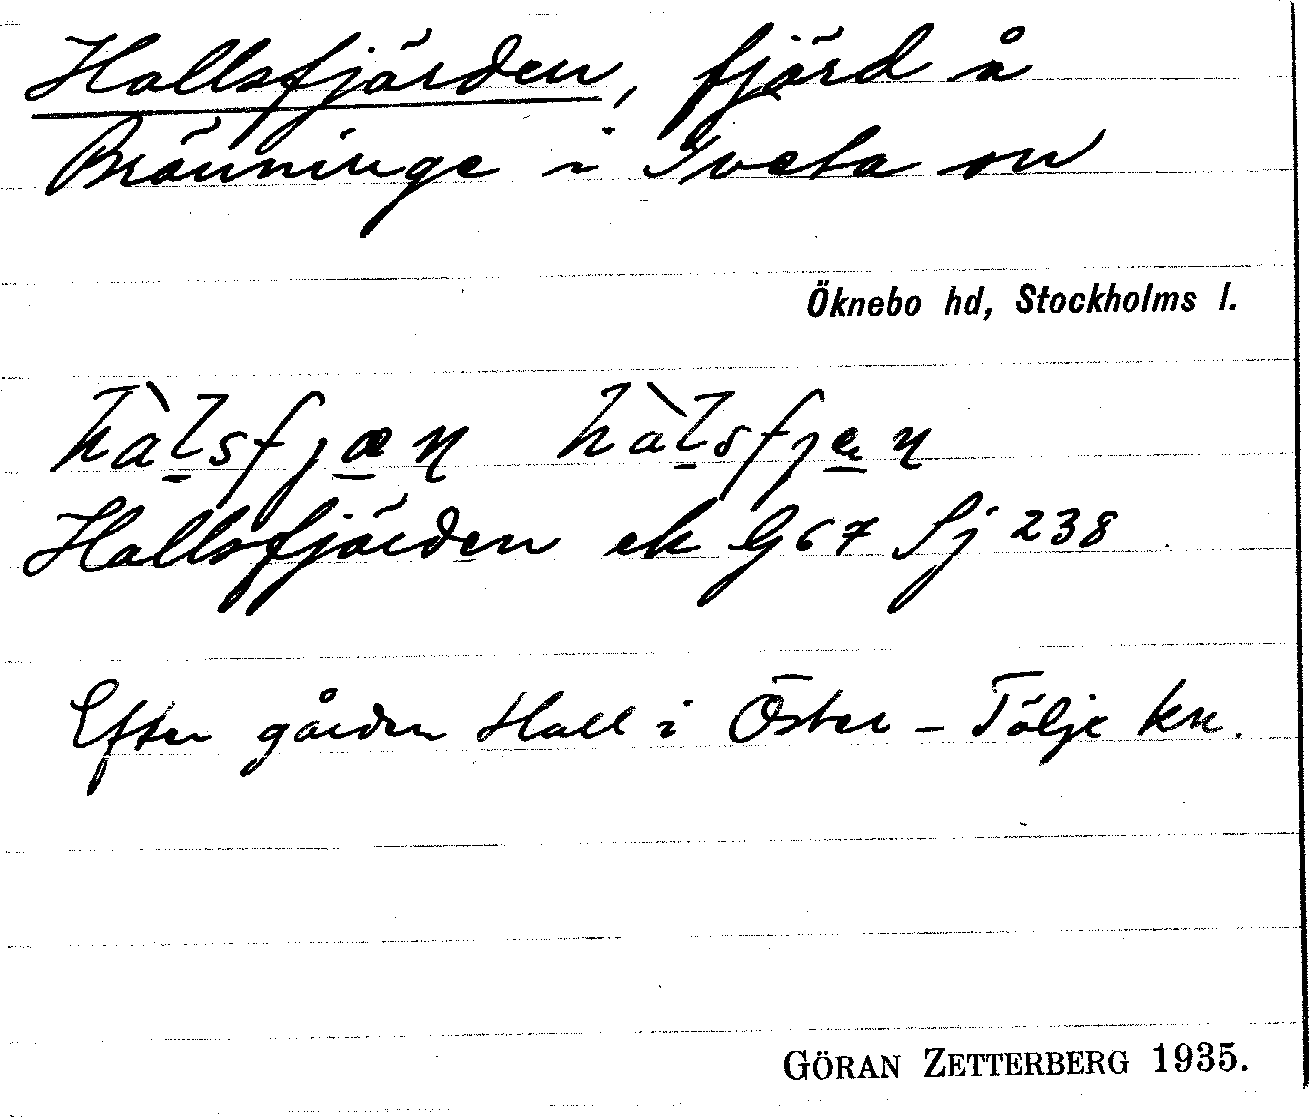 Hallsfjärden, fjärd å
Bränninge i Tveta sn
Öknebo hd, Stockholms l.
hàl̠sfjæ̠ɳ hàl̠sfje̠ɳ
Hallsfjärden ek G 67 Sj 238
Efter gården Hall i Öster-Tälje kn.
GÖRAN ZETTERBERG 1935.